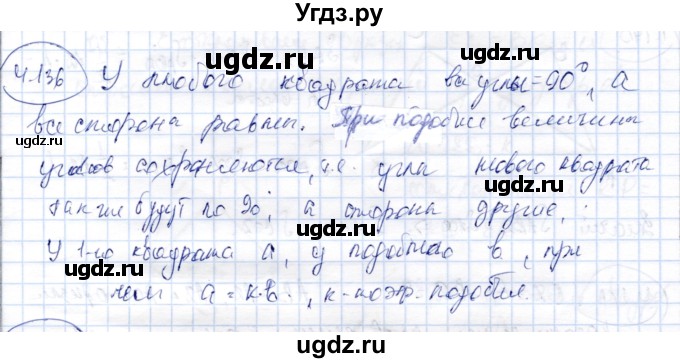 Угдз.ру
ugdz.ru ugdz.ru
4.136 У любого квадрата все углы = 90°, а
все сторона равны. При подобие величины
углов сохраняются, т.е. углы нового квадрата
ugdz.ru ugdz.ru
так же будут по 90°, а стороны другие,
У 1-го квадрата а, у подобного в, при
ugdz.ru ugdz.ru
чем а = к·в, к - коэф. подобия.
ugdz.ru ugdz.ru